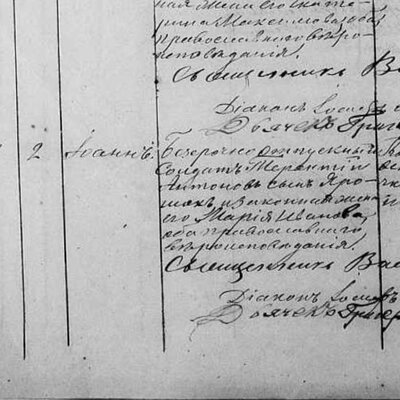 ная жена его Екате-
рина Максимова, оба
православнаго вѣро-
исповѣданія.
Священникъ Ва
Діаконъ Іосифъ
Дьячекъ Григор
2 Іоаннъ. Безсрочно отпускный
Солдатъ
Антоновъ сынъ Яро-
шакъ и законная жена
его Марія Иванова,
оба православнаго
вѣроисповѣданія.
Священникъ Вас
Діаконъ Іосифъ
Дьячекъ Григор